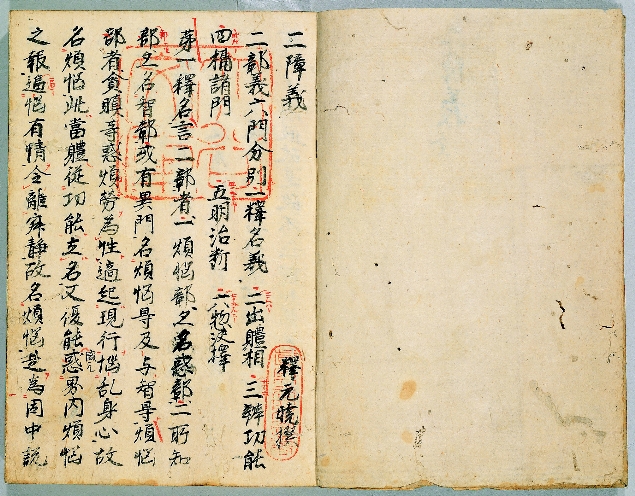 二障義 釋元曉撰
二鄣義六門分別一釋名義 二出體相 三辨功能
四攝諸門 五明治斷 六惣決擇
第一釋名言二鄣者一煩惱鄣亦名惑鄣二所知
鄣亦名智鄣或有異門名煩惱㝵及与智㝵煩惱
鄣者貪瞋等惑煩勞為性適起現行惱乱身心故
名煩惱此當體從功能立名又復能惑界内煩惱
之報逼惱有情令離寂靜故名煩惱是為因中說